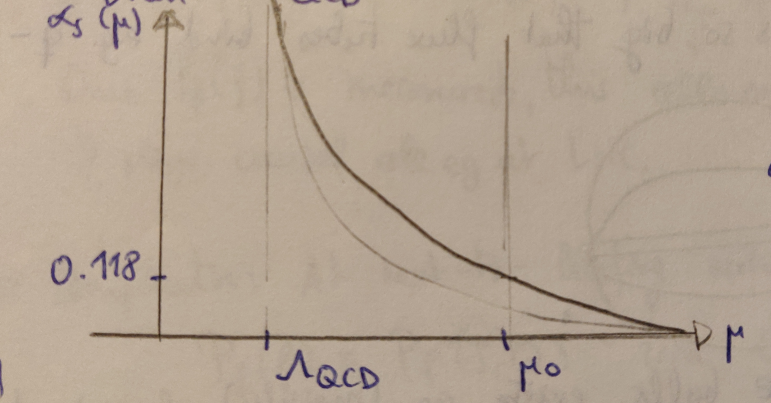 αs (μ)
0.118
ΛQCD
μ0
μ